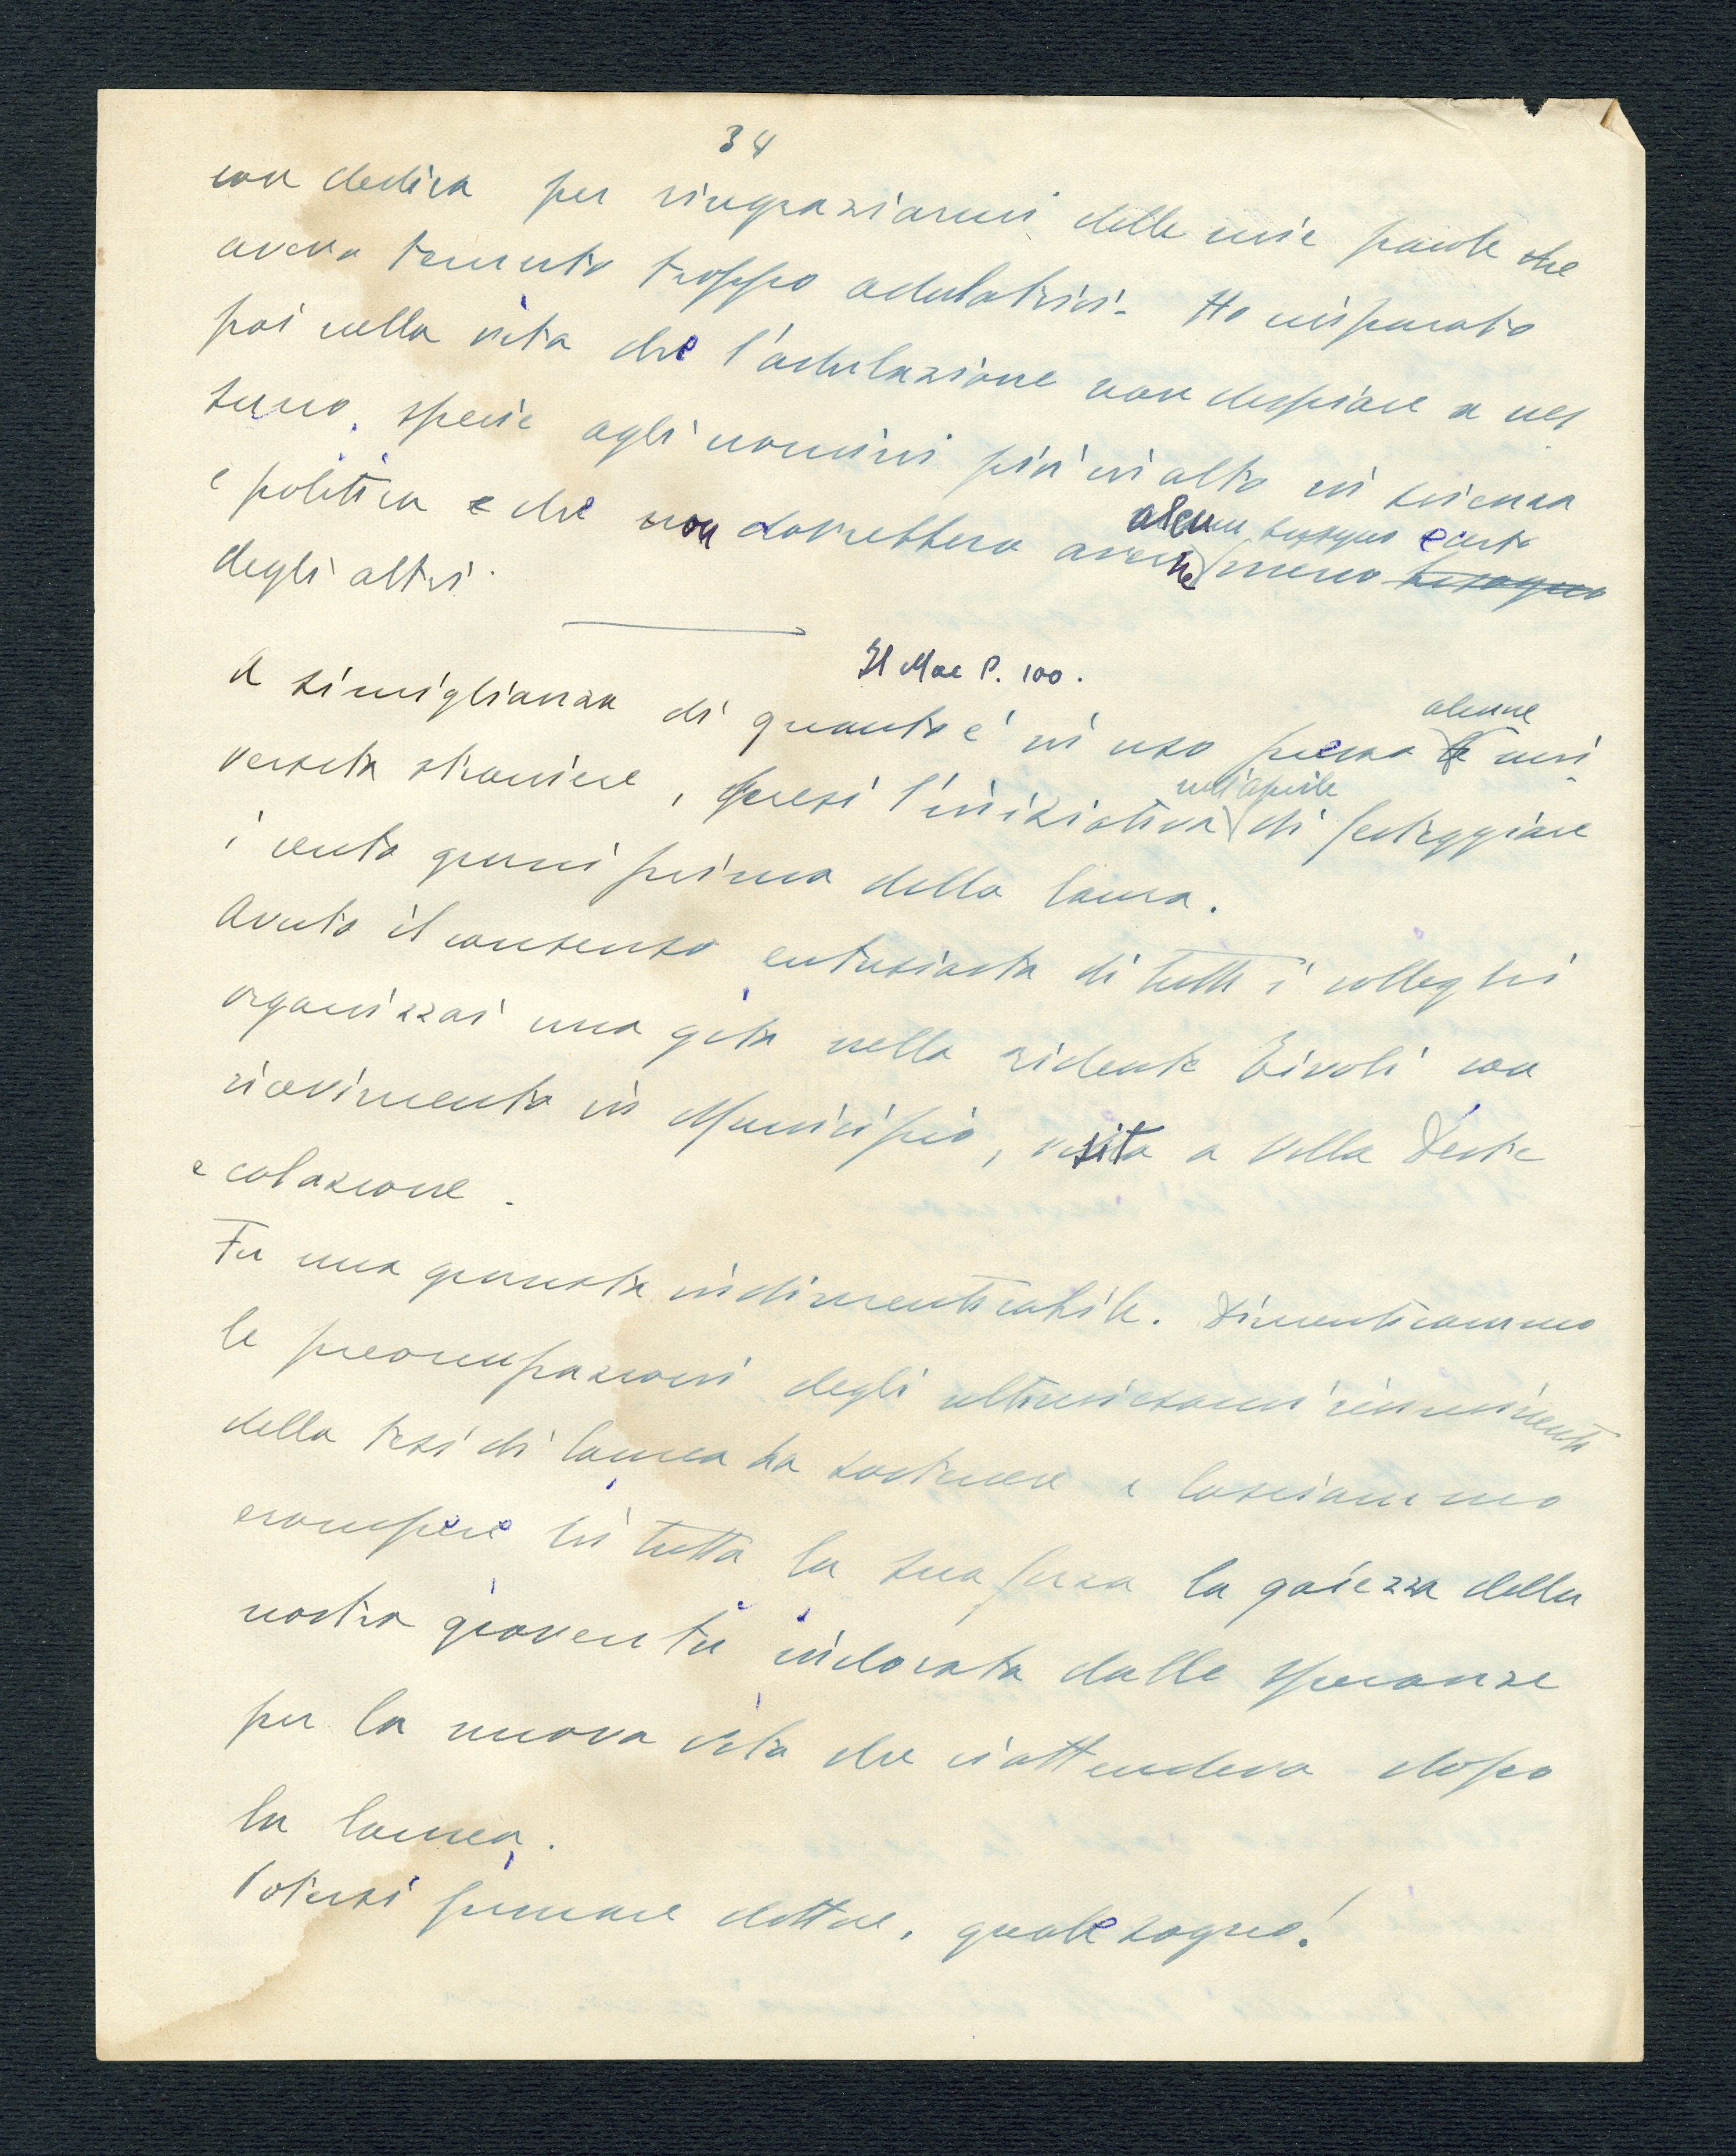 34
con dedica per ringraziarmi delle mie parole che
aveva tenuto troppo adulatrici. Ho imparato
poi nella vita che l'adulazione non despiace a nes
suno, specie agli uomini più in alto in scienza
e politica e che non dovrebbero averne
alcun bisogno e certo
meno bisogno
degli altri.
Il Mac P. 100.
A simiglianza di quanto è in uso presso le uni
alcune
versità straniere, presi l'iniziativa di festeggiare
nell'aprile
i cento giorni prima della laurea.
Avuto il consenso entusiasta di tutti i colleghi
organizzai una gita nella ridente Tivoli con
ricevimento in Municipio, visita a Villa D'este
e colazione.
Fu una giornata indimenticabile. Dimenticammo
le preoccupazioni degli ultimi esami
della tesi di laurea da sostenere e lasciammo
erompere in tutta la sua forza la gaiezza della
nostra gioventù indorata dalle speranze
per la nuova vita che ci attendeva dopo
la laurea.
Potersi firmare dottore, quale sogno!